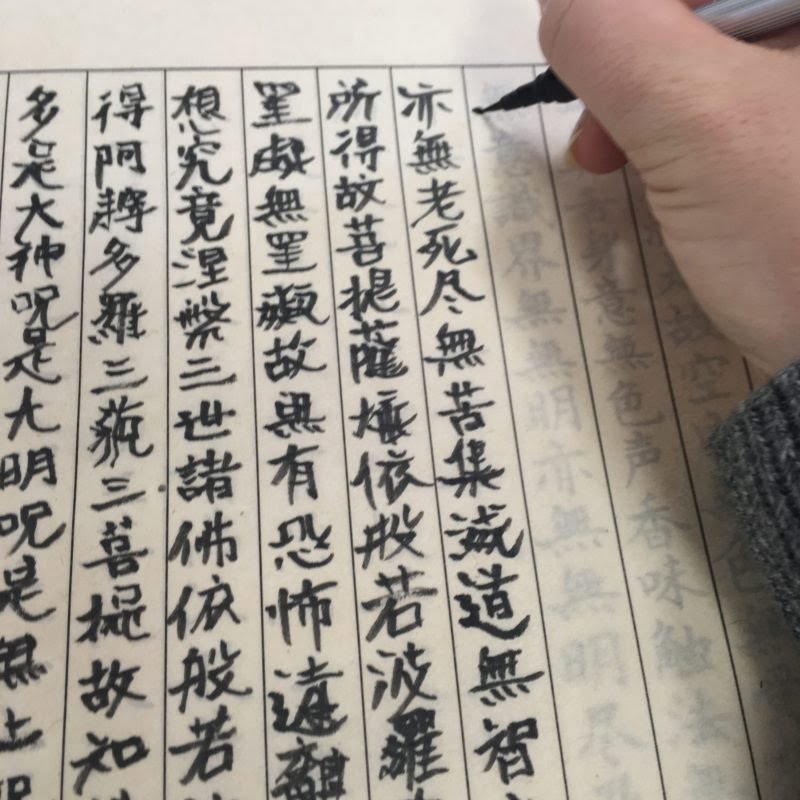 故空
舌身意無色声香味触法
意識界無無明亦無無明尽
亦無老死尽無苦集滅道無智
所得故菩提薩埵依般若波羅
罣礙無罣礙故無有恐怖遠離
想究竟涅槃三世諸佛依般若
得阿耨多羅三藐三菩提故知
多是大神呪是大明呪是無上呪